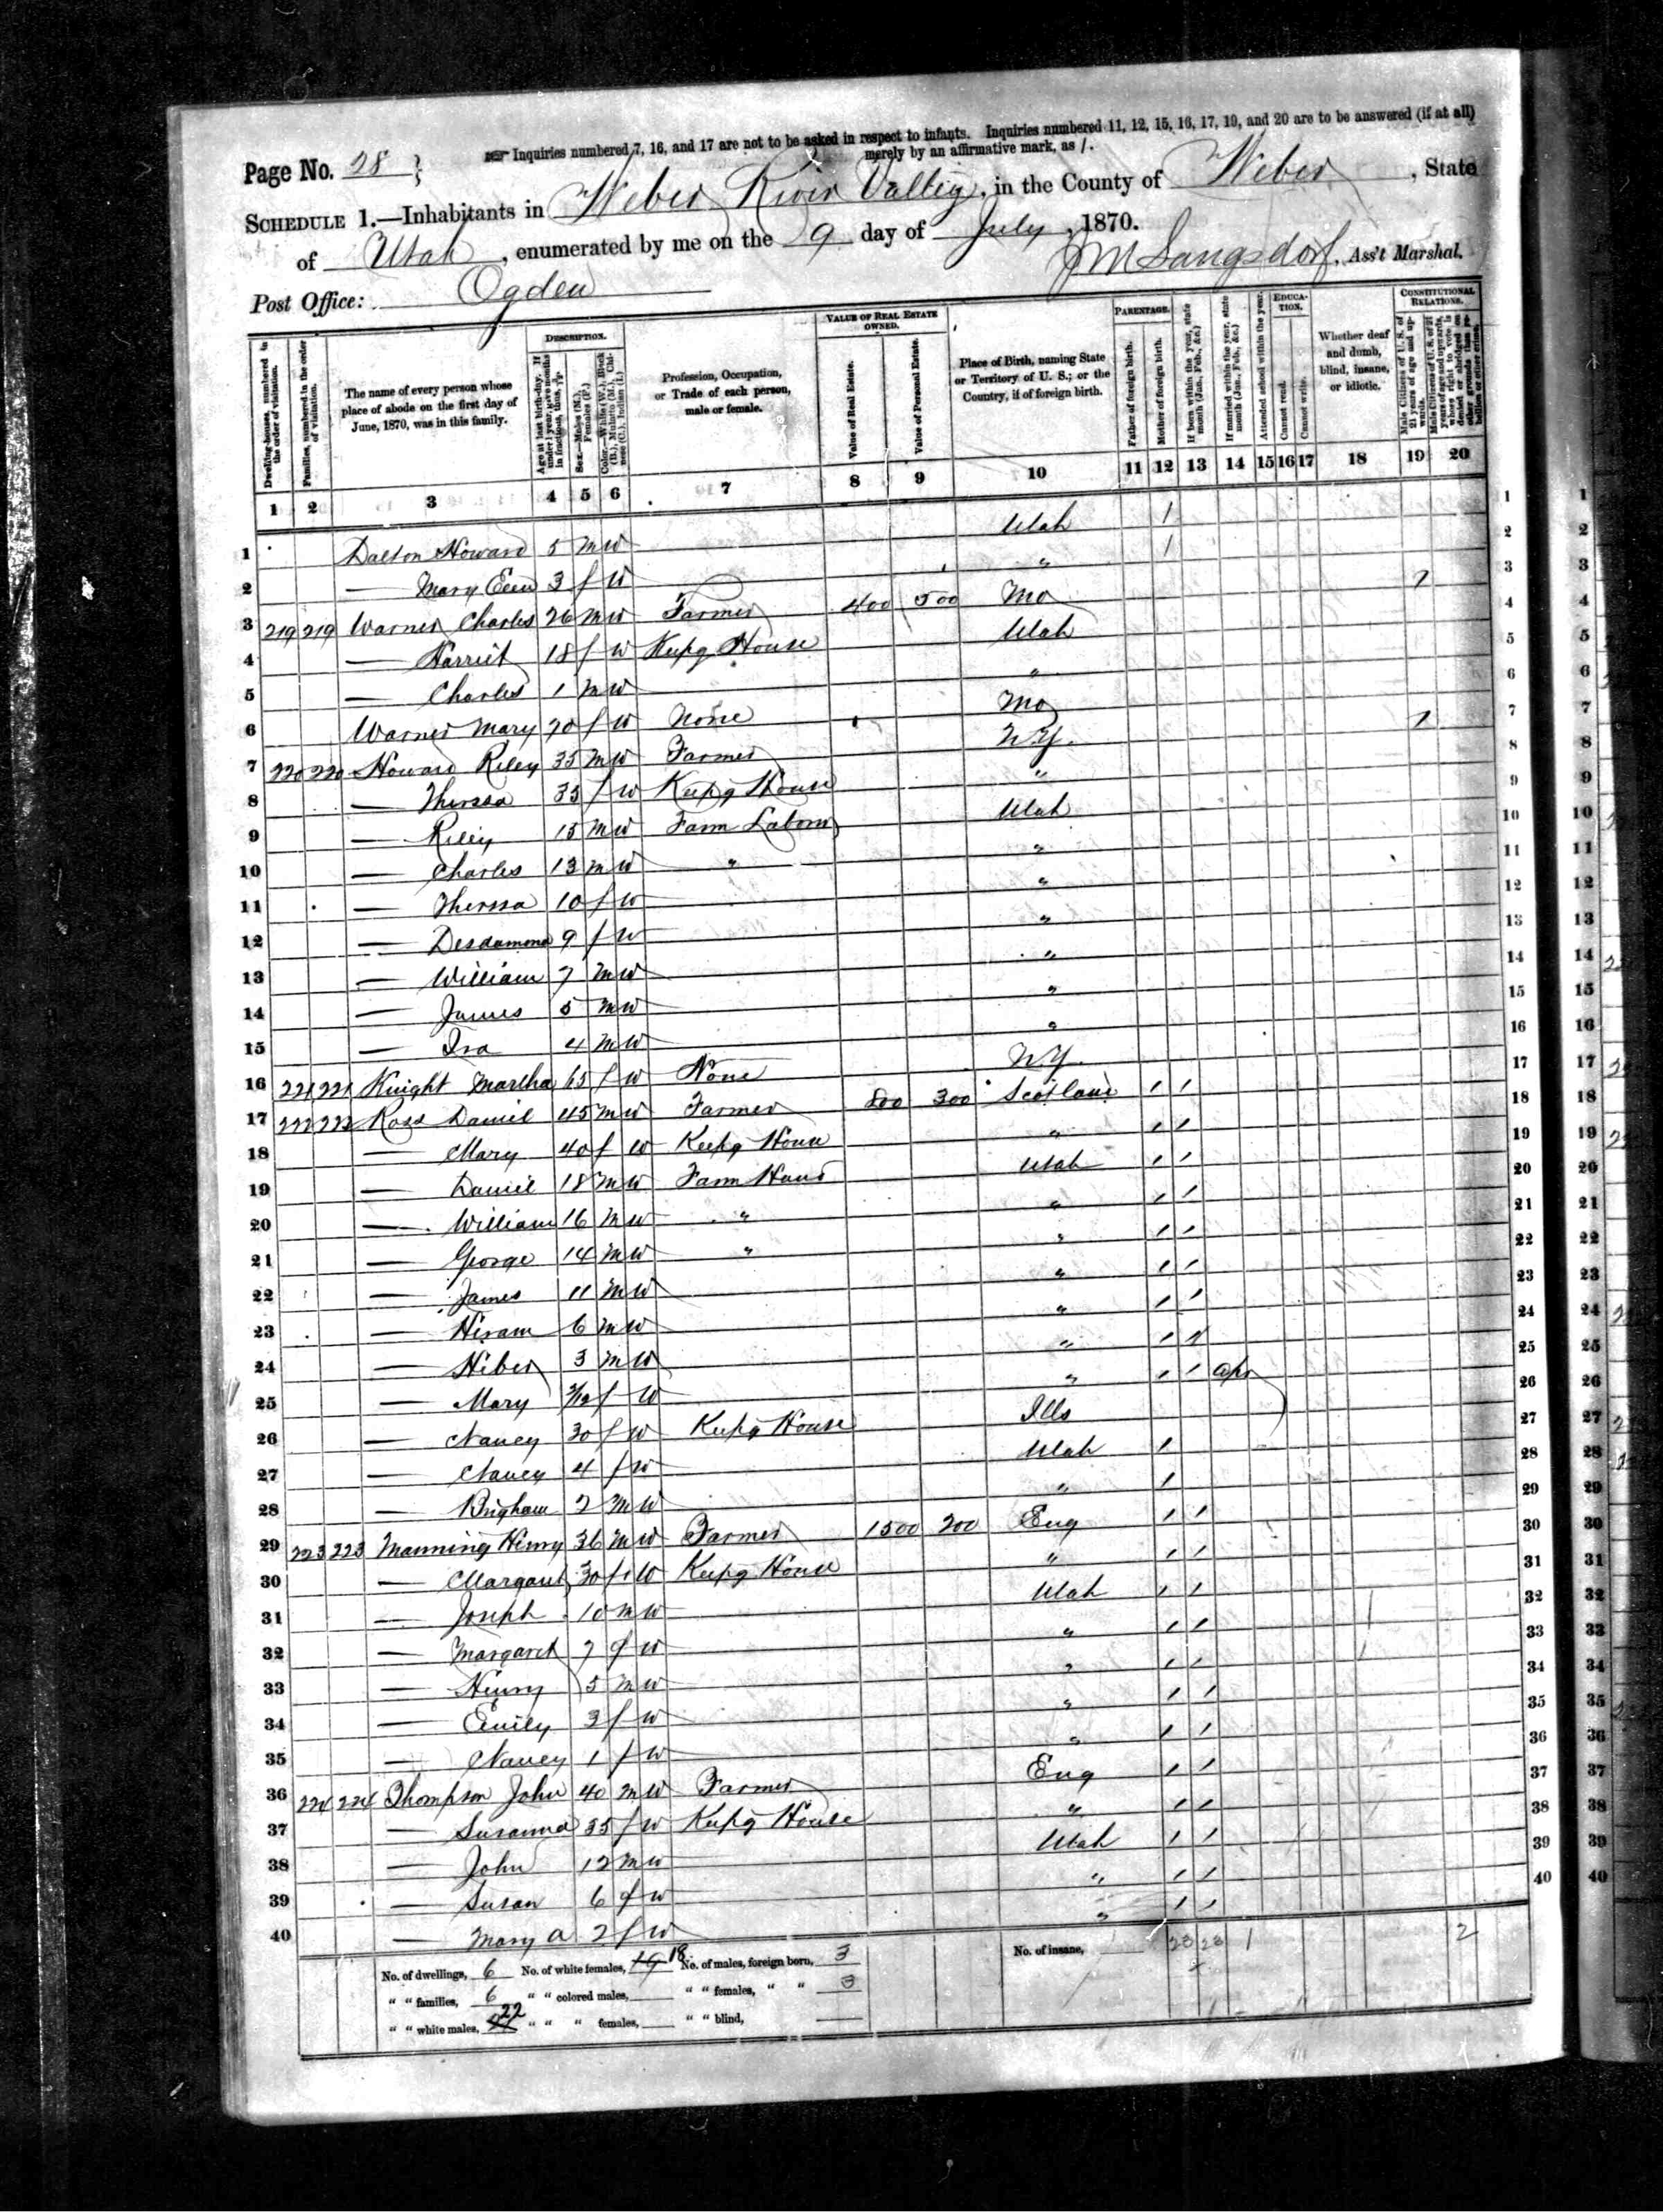 Page No. 28
Inquiries numbered 7, 16, and 17 are not to be asked in respect to infants. Inquiries numbered 11, 12, 15, 16, 17, 19, and 20 are to be answered (if at all)
merely by an affirmative mark, as /.
SCHEDULE 1.—Inhabitants in Weber River Valley, in the County of Weber, State
of Utah, enumerated by me on the 9 day of July, 1870.
Post Office: Ogden
Ass't Marshal.
DESCRIPTION. VALUE OF REAL ESTATE OWNED. PARENTAGE. EDUCATION. CONSTITUTIONAL RELATIONS.
Dwelling-houses, numbered in the order of visitation.
Families, numbered in the order of visitation.
The name of every person whose place of abode on the first day of June, 1870, was in this family.
Age at last birth-day. If under 1 year, give months in fractions, thus,
Sex.—Males (M.), Females (F.)
Color.—White (W.), Black (B.), Mulatto (M.), Chinese (C.), Indian (I.)
Profession, Occupation, or Trade of each person, male or female.
Value of Real Estate.
Value of Personal Estate.
Place of Birth, naming State or Territory of U. S.; or the Country, if of foreign birth.
Father of foreign birth.
Mother of foreign birth.
If born within the year, state month (Jan., Feb., &c.)
If married within the year, state month (Jan., Feb., &c.)
Attended school within the year.
Cannot read.
Cannot write.
Whether deaf and dumb, blind, insane, or idiotic.
Male Citizens of U. S. of 21 years of age and upwards.
1 2 3 4 5 6 7 8 9 10 11 12 13 14 15 16 17 18 19 20
1 Dalton Howard 5 m W Utah / 1
2 — Mary 3 f W " / 2
3 219 219 Warner Charles 26 m W Farmer 400 500 Mo / 3
4 — Harriet 18 f W Keepg House Utah 4
5 — Charles 1 m W " 5
6 Warner Mary 70 f W None Mo 6
7 220 220 Howard Riley 35 m W Farmer N.Y. / 7
8 — Therssa 35 f W Keepg House " 8
9 — Riley 15 m W Farm Labour Utah 9
10 — Charles 13 m W " " 10
11 — Therssa 10 f W " 11
12 — Desdamona 9 f W " 12
13 — William 7 m W " 13
14 — James 5 m W " 14
15 — Ira 4 m W " 15
16 221 221 Knight Martha 65 f W None N.Y. 16
17 222 222 Ross Daniel 45 m W Farmer 800 300 Scotland / / 17
18 — Mary 40 f W Keepg House " / / 18
19 — Daniel 18 m W Farm Hand Utah / / 19
20 — William 16 m W " " / / 20
21 — George 14 m W " " / / 21
22 — James 11 m W " / / 22
23 — Hiram 6 m W " / / 23
24 — Hiber 3 m W " / / 24
25 — Mary 3/12 f W " / / Apr 25
26 — Nancy 30 f W Keepg House Ills 26
27 — Nancy 4 f W Utah / 27
28 — Brigham 2 m W " / 28
29 223 223 Manning Henry 36 m W Farmer 1500 200 Eng / / 29
30 — Margaret 30 f W Keepg House " / / 30
31 — Joseph 10 m W Utah / / 31
32 — Margaret 7 f W " / / 32
33 — Henry 5 m W " / / 33
34 — Emily 3 f W " / / 34
35 — Nancy 1 f W " / / 35
36 224 224 Thompson John 40 m W Farmer Eng / / 36
37 — Susanna 35 f W Keepg House " / / 37
38 — John 12 m W Utah / / 38
39 — Susan 6 f W " / / 39
40 — Mary A 2 f W " / / 40
No. of dwellings, 6 No. of white females, 19 18 No. of males, foreign born, 3 No. of insane, 23 23 1 2
" " families, 6 " " colored males, " " females, " " 3
" " white males, 22 " " " females, " " blind,